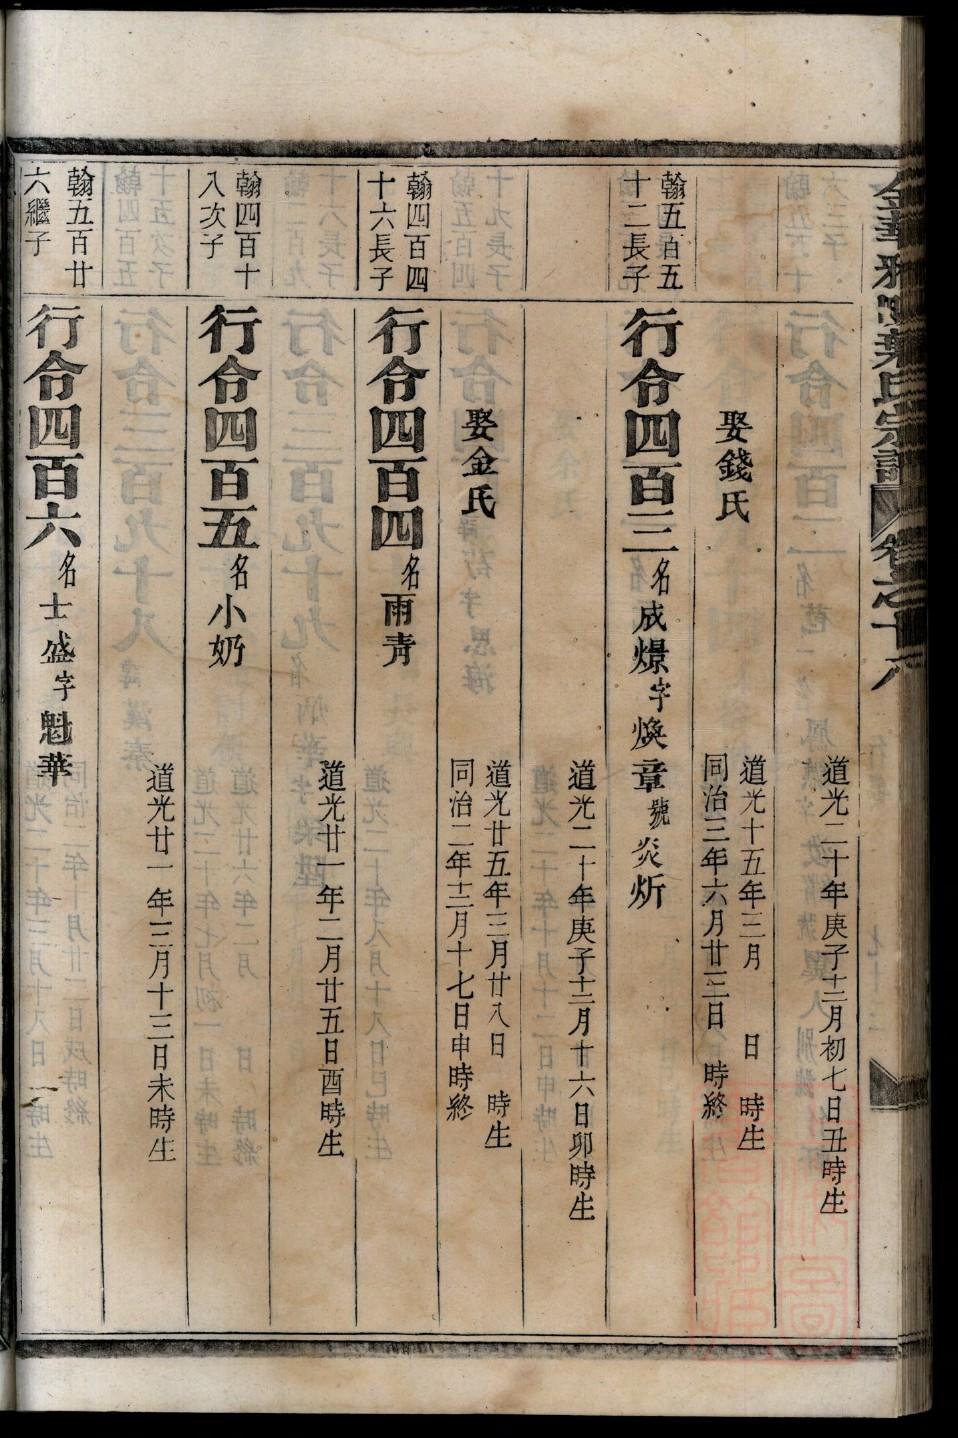 道光二十年庚子十二月初七日丑時生
娶錢氏
道光十五年三月 日 時生
同治三年六月廿三日 時終
翰五百五
十二長子
行令四百三名成燝字煥章號炎炘
道光二十年庚子十二月十六日卯時生
娶金氏
道光廿五年三月廿八日 時生
同治二年十二月十七日申時終
翰四百四
十六長子
行令四百四名雨青
道光廿一年二月廿五日酉時生
翰四百十
八次子
行令四百五名小奶
道光廿一年三月十三日未時生
翰五百廿
六繼子
行令四百六名士盛字魁華